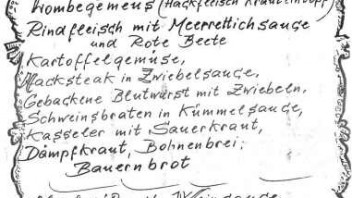 Hombegemeus (Hackfleisch Krauteintopf)
Rindfleisch mit Meerrettichsauce
und Rote Beete
Kartoffelgemüse,
Hacksteak in Zwiebelsauce,
Gebackene Blutwurst mit Zwiebeln,
Schweinsbraten in Kümmelsauge,
Kasseler mit Sauerkraut,
Dämpfkraut, Bohnenbrei,
Bauernbrot